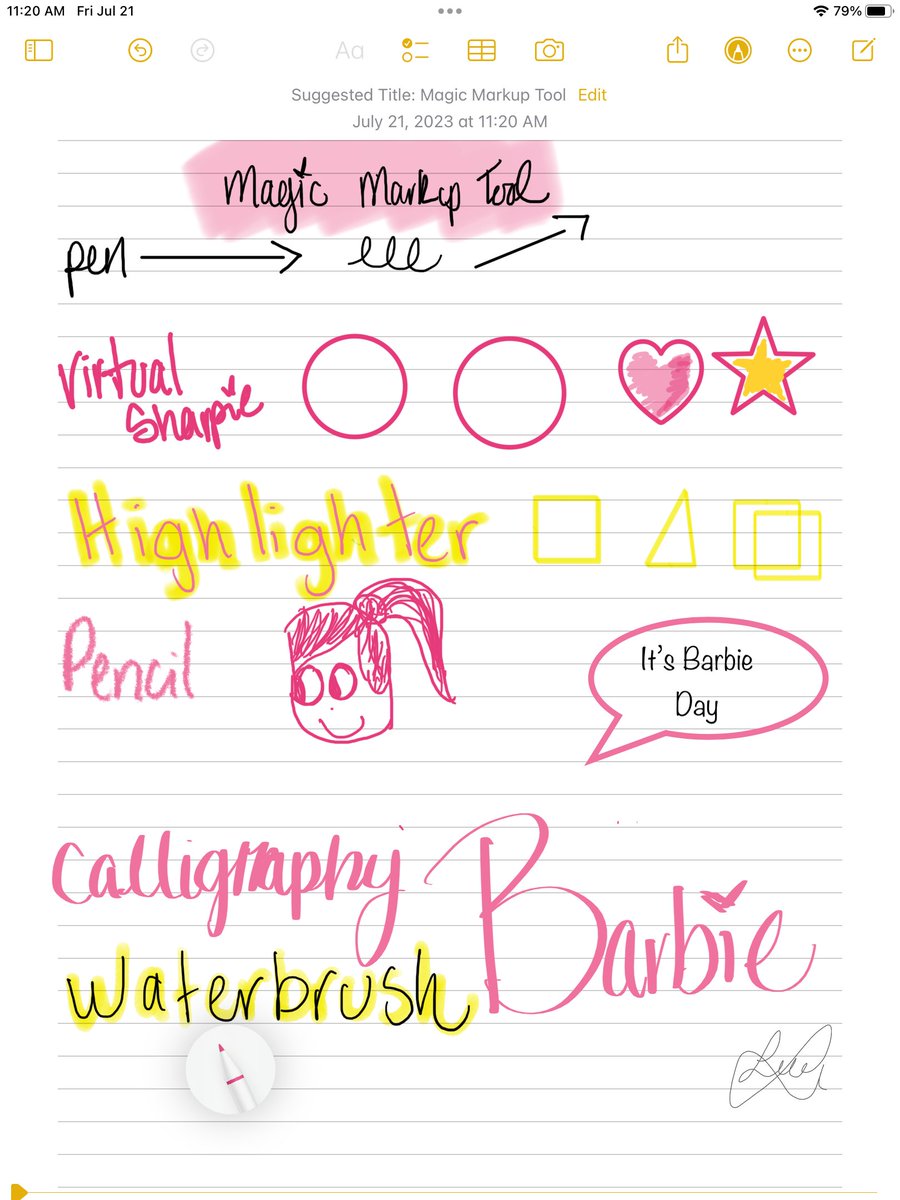 11:20 AM Fri Jul 21
79%
Aa
Suggested Title: Magic Markup Tool Edit
July 21, 2023 at 11:20 AM
Magic Markup Tool
pen
eee
Virtual
Sharpie
Highlighter
Pencil
It's Barbie
Day
Calligraphy
Barbie
Waterbrush